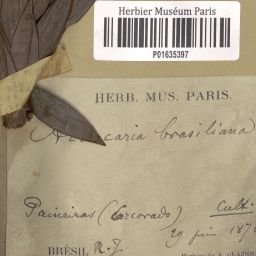 Herbier Muséum Paris
P01635397
HERB. MUS. PARIS.
Araucaria brasiliana
Paineiras (Corcovado) Cult.
29 juin 187
BRÉSIL R. J.